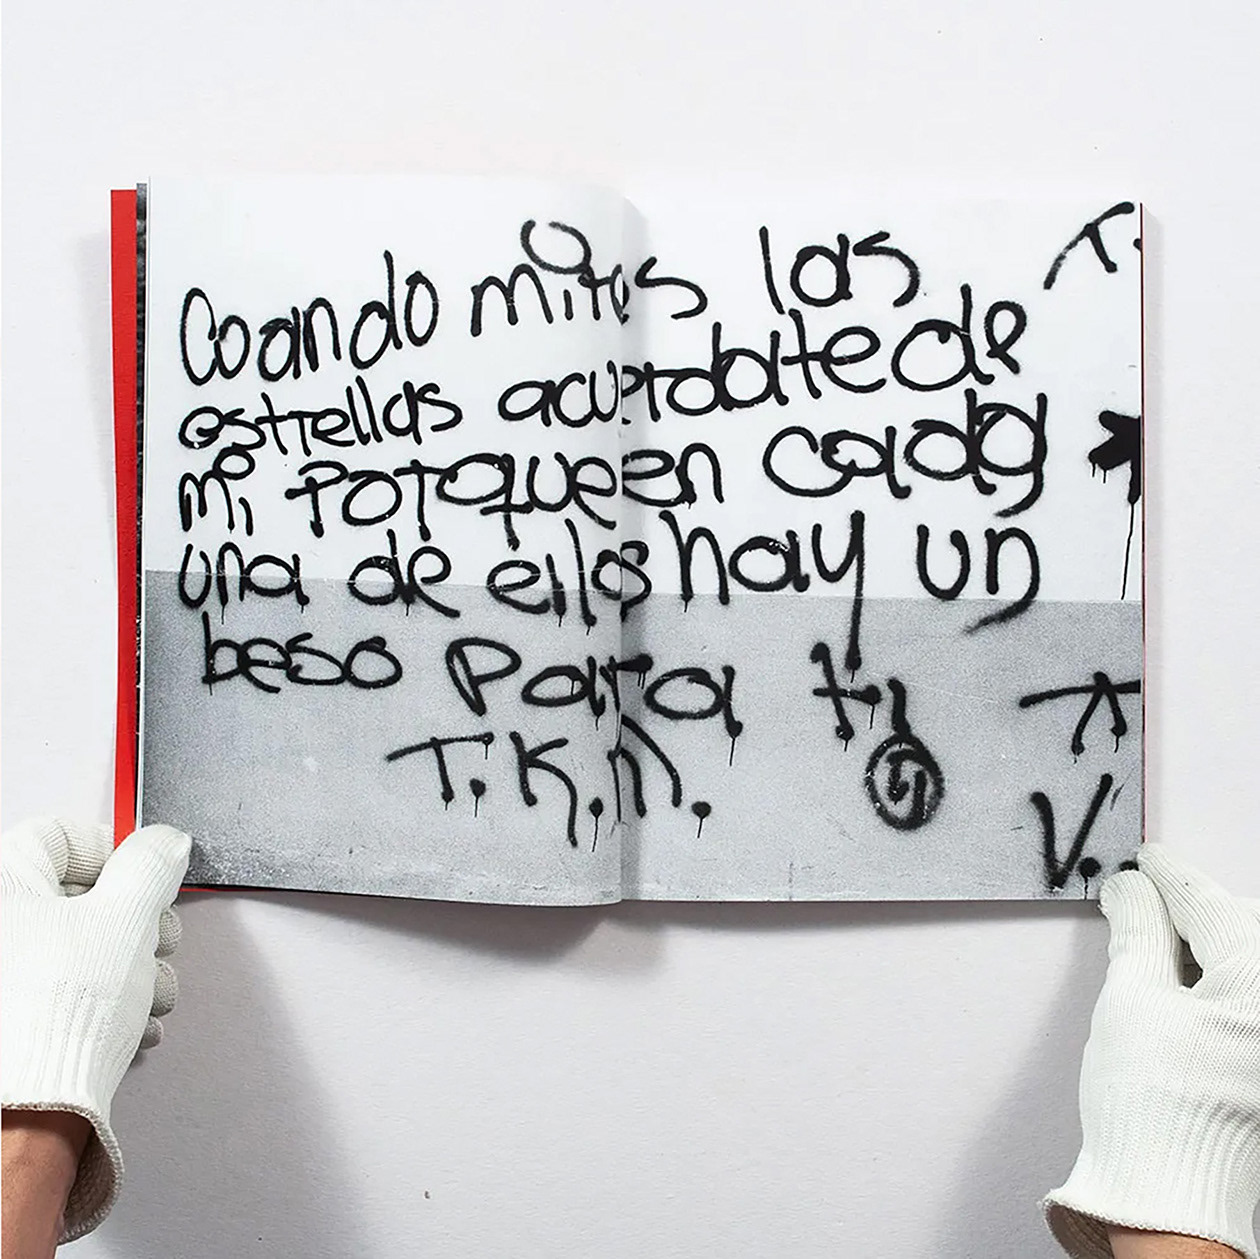 Coando mires las
estrellas acuerdate de
mi Porque en cada
una de ellas hay un
beso Para ti
T.K.M.
T.
V.